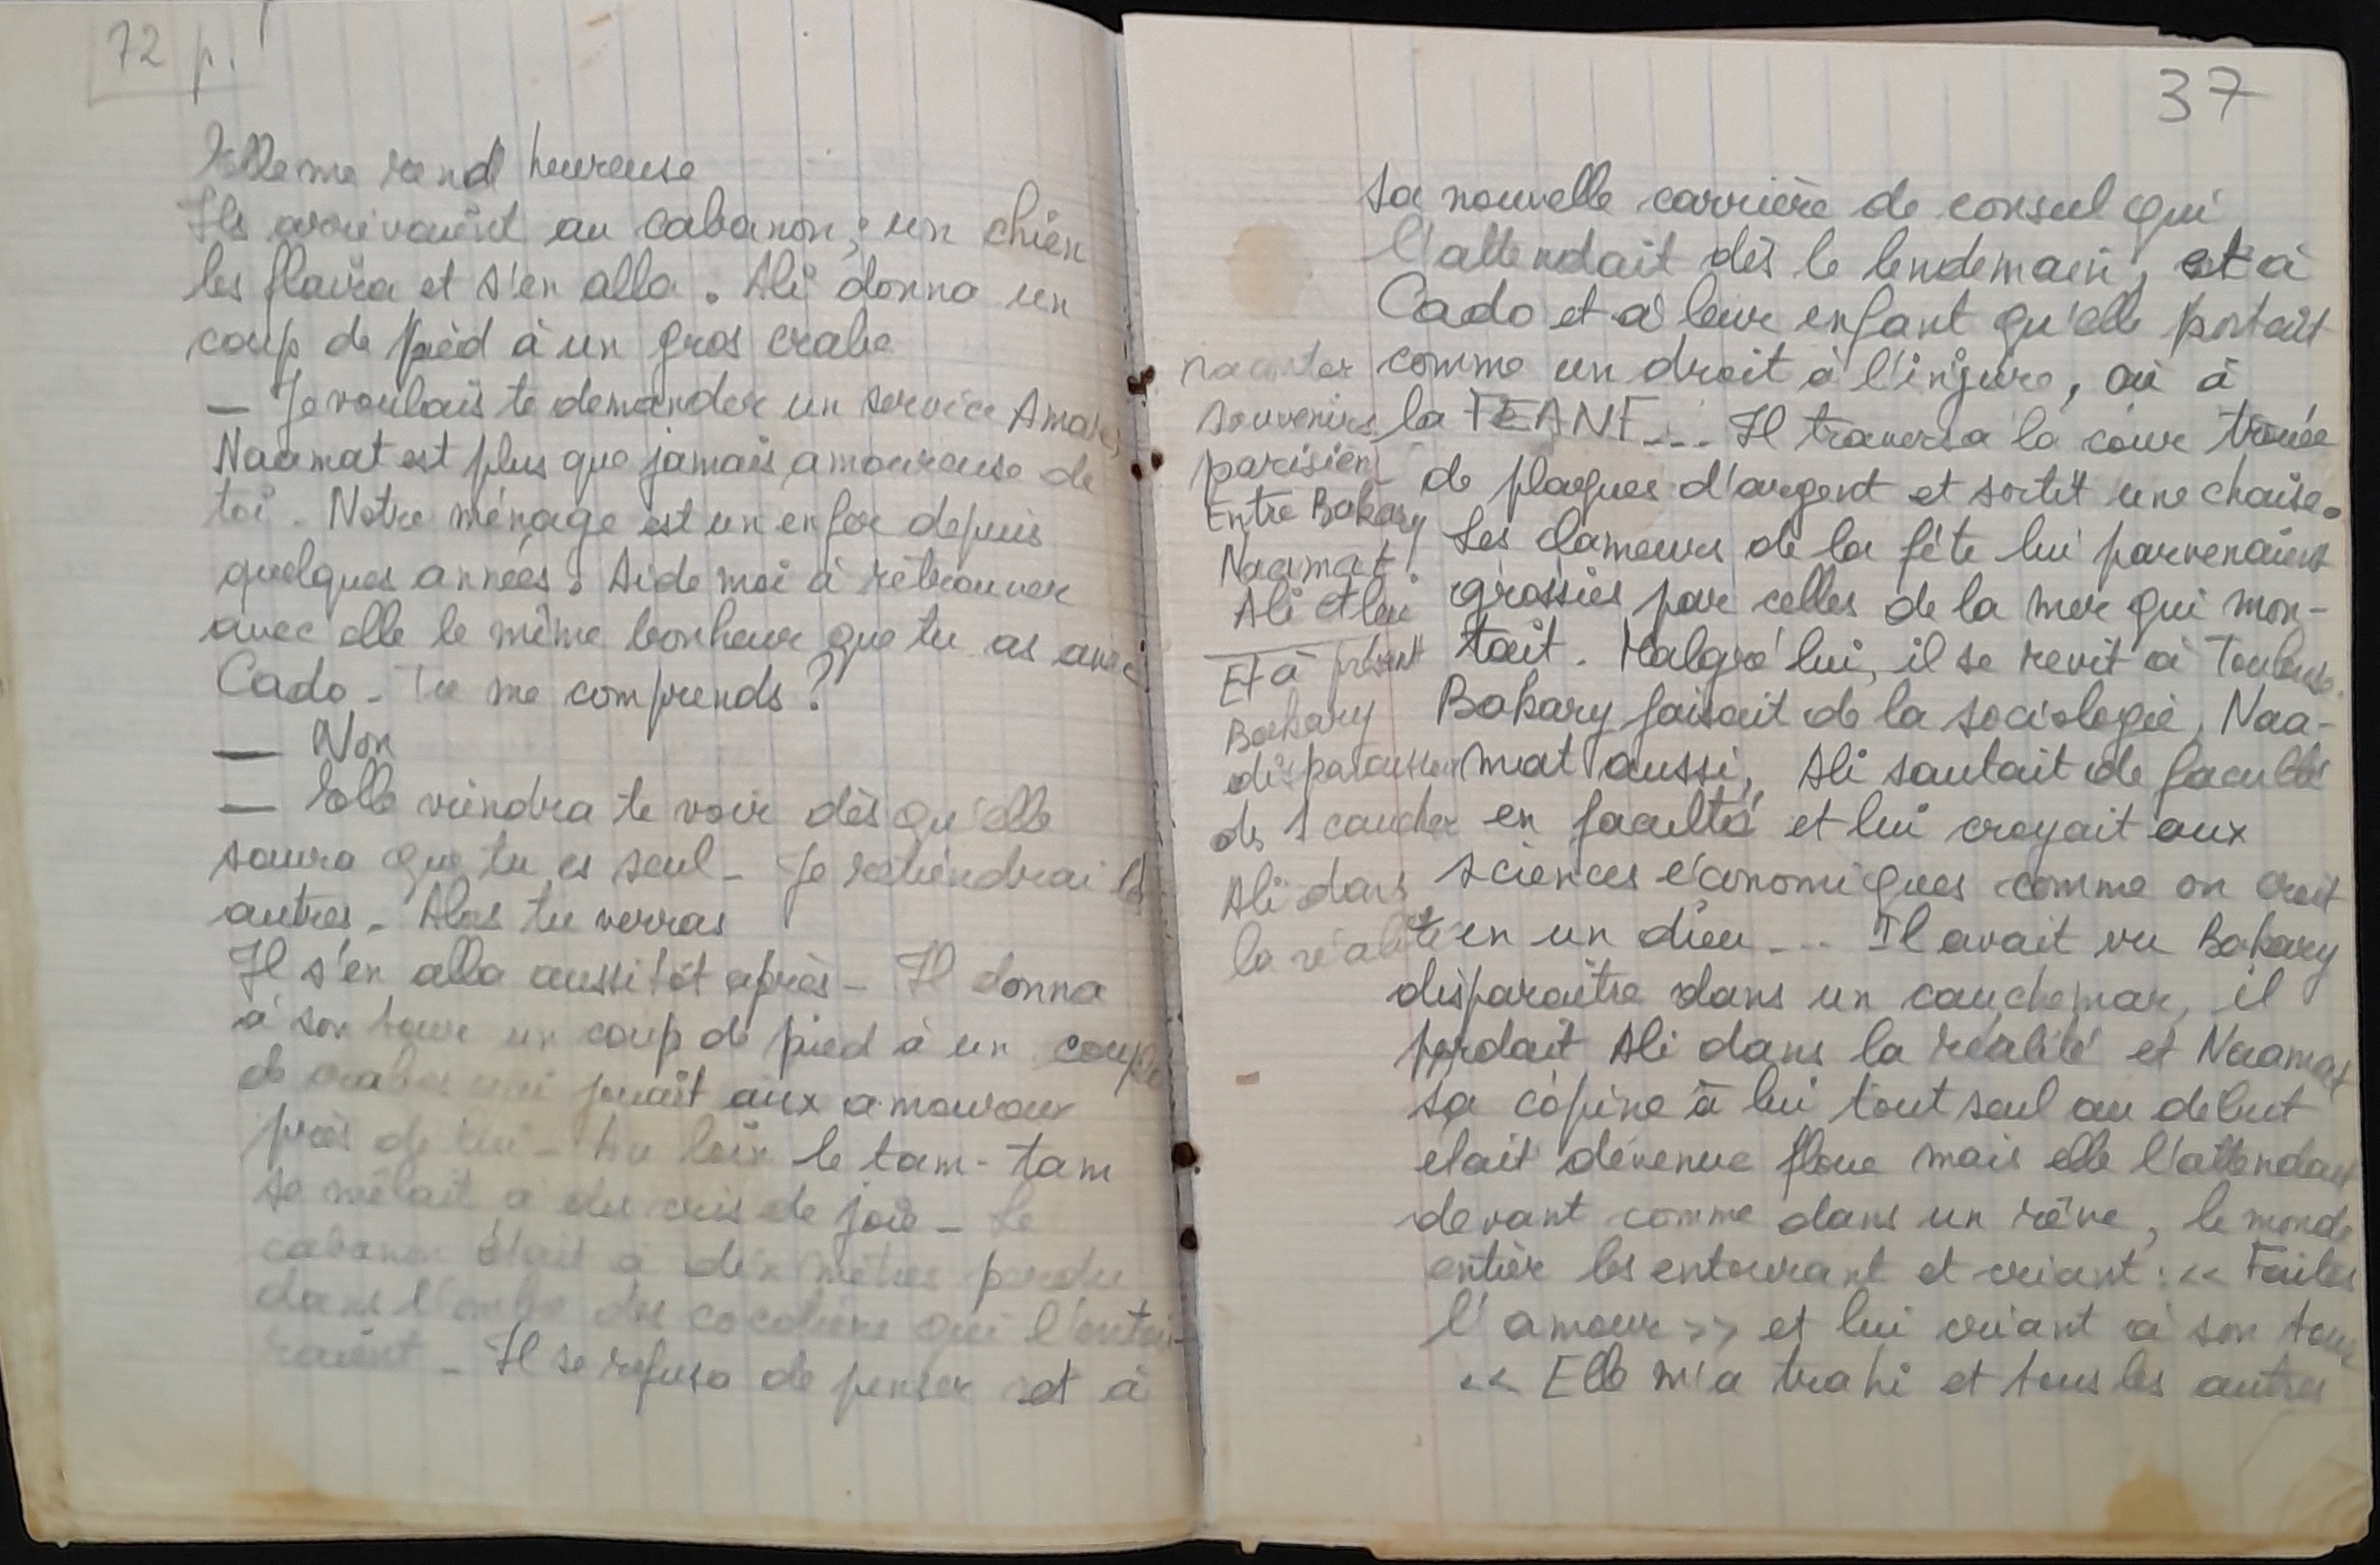 72 p.
Elle me rend heureuse
Ils arrivaient au cabanon ; un chien
les flaira et s'en alla. Ali donna un
coup de pied à un gros crabe
— Je voulais te demander un service Amar,
Naamat est plus que jamais amoureuse de
toi. Notre ménage est un enfer depuis
quelques années. Aide moi à retrouver
avec elle le même bonheur que tu as avec
Cado - Tu me comprends ?
— Non
— Elle viendra te voir dès qu'elle
saura que tu es seul - Je retiendrai les
autres. Alors tu verras
Il s'en alla aussitôt après - Il donna
à son tour un coup de pied à un couple
de crabes qui jouait aux amoureux
près de lui - Au loin le tam-tam
se mêlait à des cris de joie - Le
cabanon était à dix mètres perdu
dans l'ombre des cocotiers qui l'entou-
raient - Il se refusa de penser et à
37
sa nouvelle carrière de consul qui
l'attendait dès le lendemain, et à
Cado et à leur enfant qu'elle portait
comme un droit à l'injure, où à
la FEANF... Il traversa la cour trouée
de plaques d'argent et sortit une chaise.
Les clameurs de la fête lui parvenaient
grossies par celles de la mer qui mon-
tait. Malgré lui, il se revit à Toulouse.
Bakary faisait de la sociologie, Naa-
mat aussi, Ali sautait de faculté
en faculté et lui croyait aux
sciences économiques comme on croit
en un dieu... Il avait vu Bakary
disparaître dans un cauchemar, il
perdait Ali dans la réalité et Naamat
sa copine à lui tout seul au début
était dévenue floue mais elle l'attendait
devant comme dans un rêve, le monde
entier les entourant et criant : « Faites
l'amour » et lui criant à son tour
« Elle m'a trahi et tous les autres
raconter
souvenirs
parisiens
Entre Bakary
Naamat
Ali et lui
Et à présent
Bakary
disparaissant
ds 1 cauchar
Ali dans
la réalité